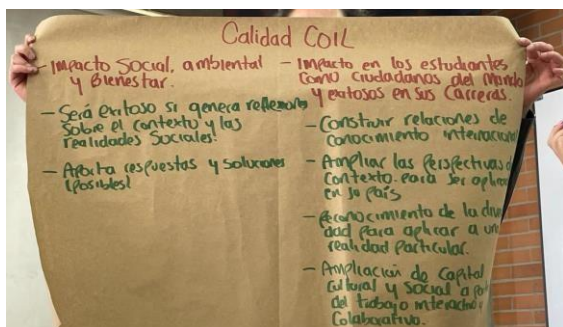 Calidad COIL
- Impacto Social, ambiental
y Bienestar.
- Será exitoso si genera reflexiones
sobre el contexto y las
realidades Sociales.
- Aporta respuestas y soluciones
(posibles)
- Impacto en los estudiantes
como ciudadanos del mundo
y exitosos en sus Carreras.
- Construir relaciones de
conocimiento
- Ampliar las Perspectivas
contexto para ser
en su país
- Reconocimiento de la
dad para aplicar a
realidad particular.
- Ampliación de Capital
Cultural y Social a
del trabajo interactivo
Colaborativo.